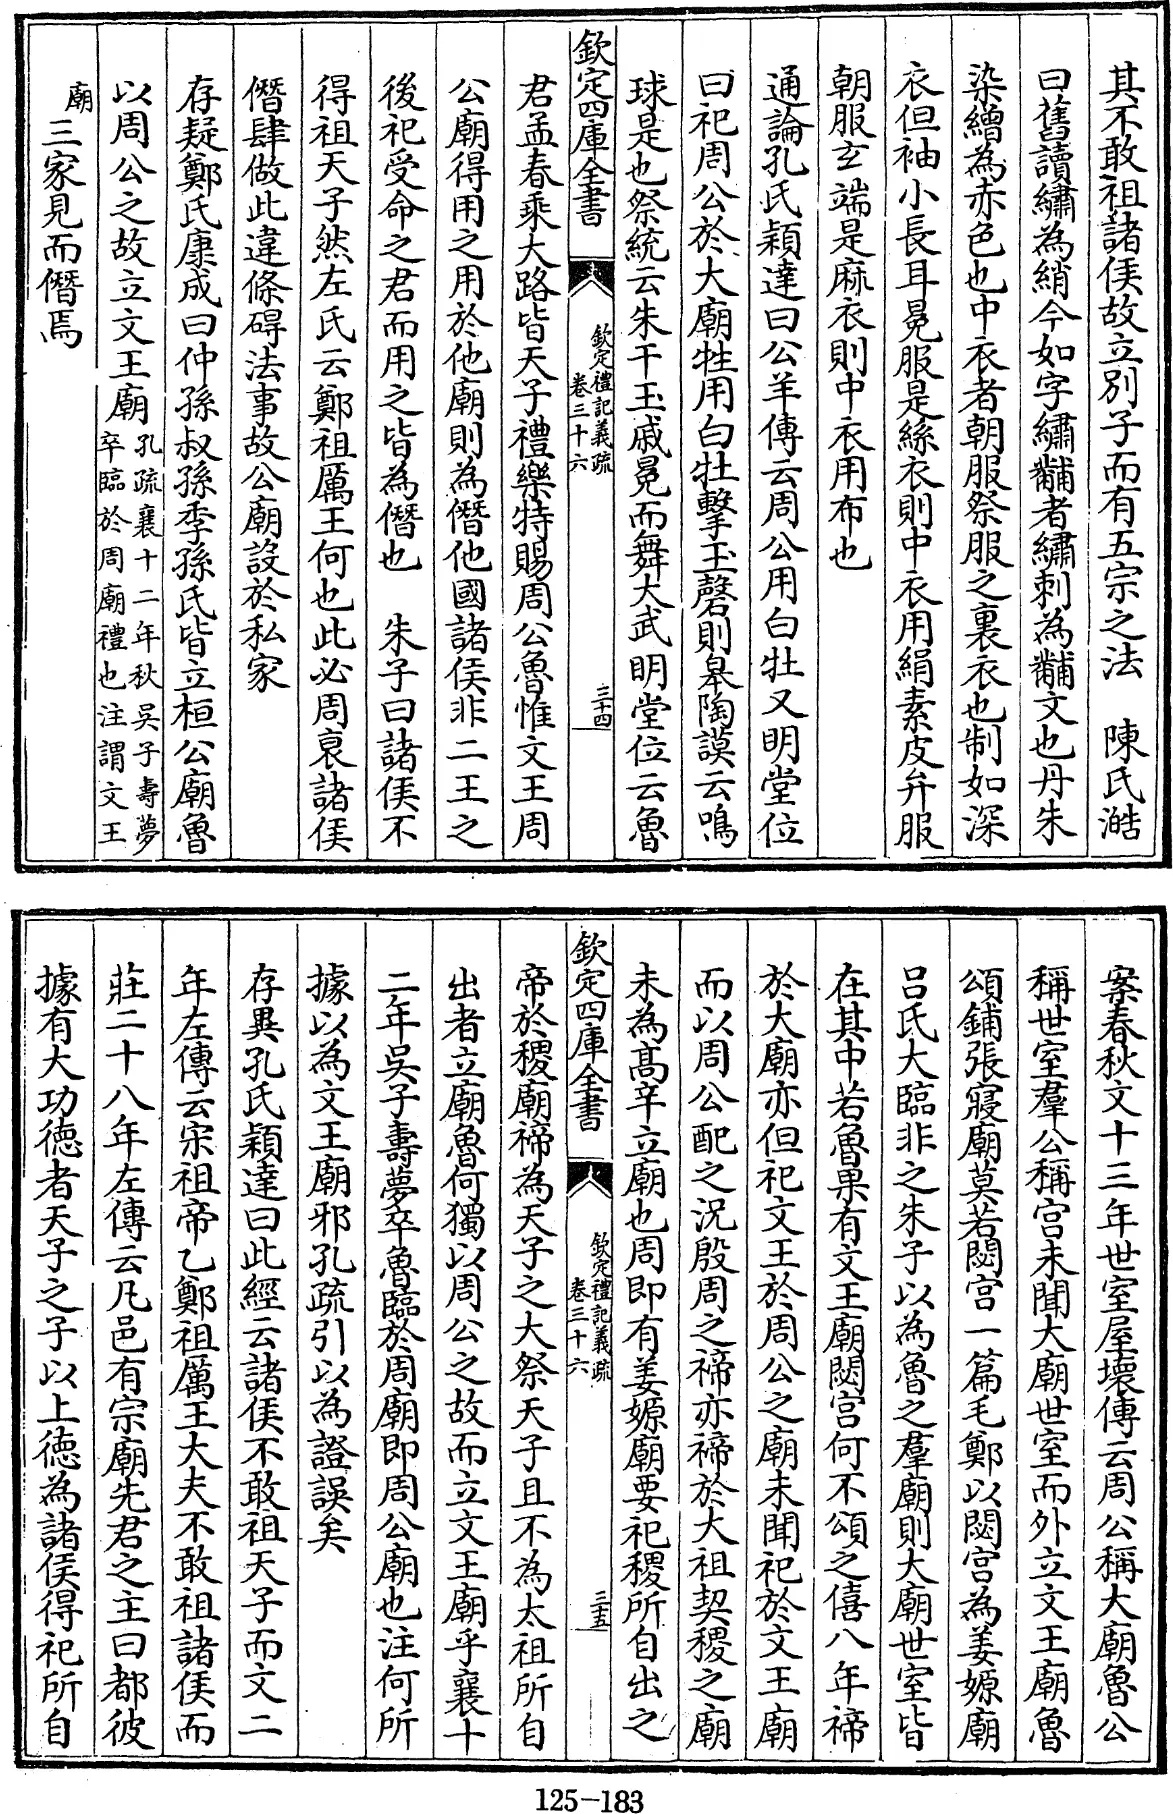 其不敢祖諸侯故立別子而有五宗之法　陳氏澔
曰舊讀繡為綃今如字繡黼者繡刺為黼文也丹朱
染繒為赤色也中衣者朝服祭服之裏衣也制如深
衣但袖小長耳冕服是絲衣則中衣用絹素皮弁服
朝服玄端是麻衣則中衣用布也
通論孔氏穎達曰公羊傳云周公用白牡又明堂位
曰祀周公於大廟牲用白牡擊玉磬則皋陶謨云鳴
球是也祭統云朱干玉戚冕而舞大武明堂位云魯
欽定四庫全書
欽定禮記義疏
卷三十六
三十四
君孟春乘大路皆天子禮樂特賜周公魯惟文王周
公廟得用之用於他廟則為僭他國諸侯非二王之
後祀受命之君而用之皆為僭也　朱子曰諸侯不
得祖天子然左氏云鄭祖厲王何也此必周衰諸侯
僭肆做此違條碍法事故公廟設於私家
存疑鄭氏康成曰仲孫叔孫季孫氏皆立桓公廟魯
以周公之故立文王廟孔疏襄十二年秋吳子壽夢
卒臨於周廟禮也注謂文王
廟三家見而僭焉
案春秋文十三年世室屋壞傳云周公稱大廟魯公
稱世室羣公稱宮未聞大廟世室而外立文王廟魯
頌鋪張寢廟莫若閟宮一篇毛鄭以閟宮為姜嫄廟
呂氏大臨非之朱子以為魯之羣廟則大廟世室皆
在其中若魯果有文王廟閟宮何不頌之僖八年禘
於大廟亦但祀文王於周公之廟未聞祀於文王廟
而以周公配之況殷周之禘亦禘於大祖契稷之廟
未為高辛立廟也周即有姜嫄廟要祀稷所自出之
欽定四庫全書
欽定禮記義疏
卷三十六
三十五
帝於稷廟禘為天子之大祭天子且不為太祖所自
出者立廟魯何獨以周公之故而立文王廟乎襄十
二年吳子壽夢卒魯臨於周廟即周公廟也注何所
據以為文王廟邪孔疏引以為證誤矣
存異孔氏穎達曰此經云諸侯不敢祖天子而文二
年左傳云宋祖帝乙鄭祖厲王大夫不敢祖諸侯而
莊二十八年左傳云凡邑有宗廟先君之主曰都彼
據有大功德者天子之子以上德為諸侯得祀所自
125-183